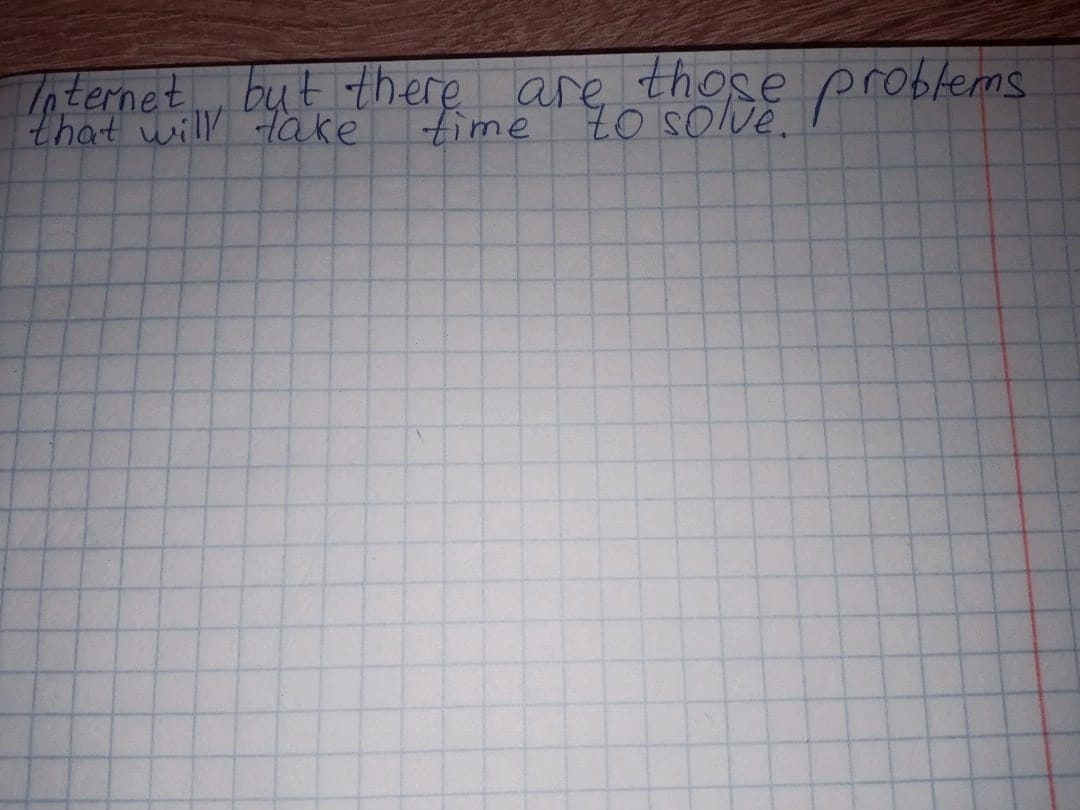 Internet, but there are those problems
that will take time to solve.